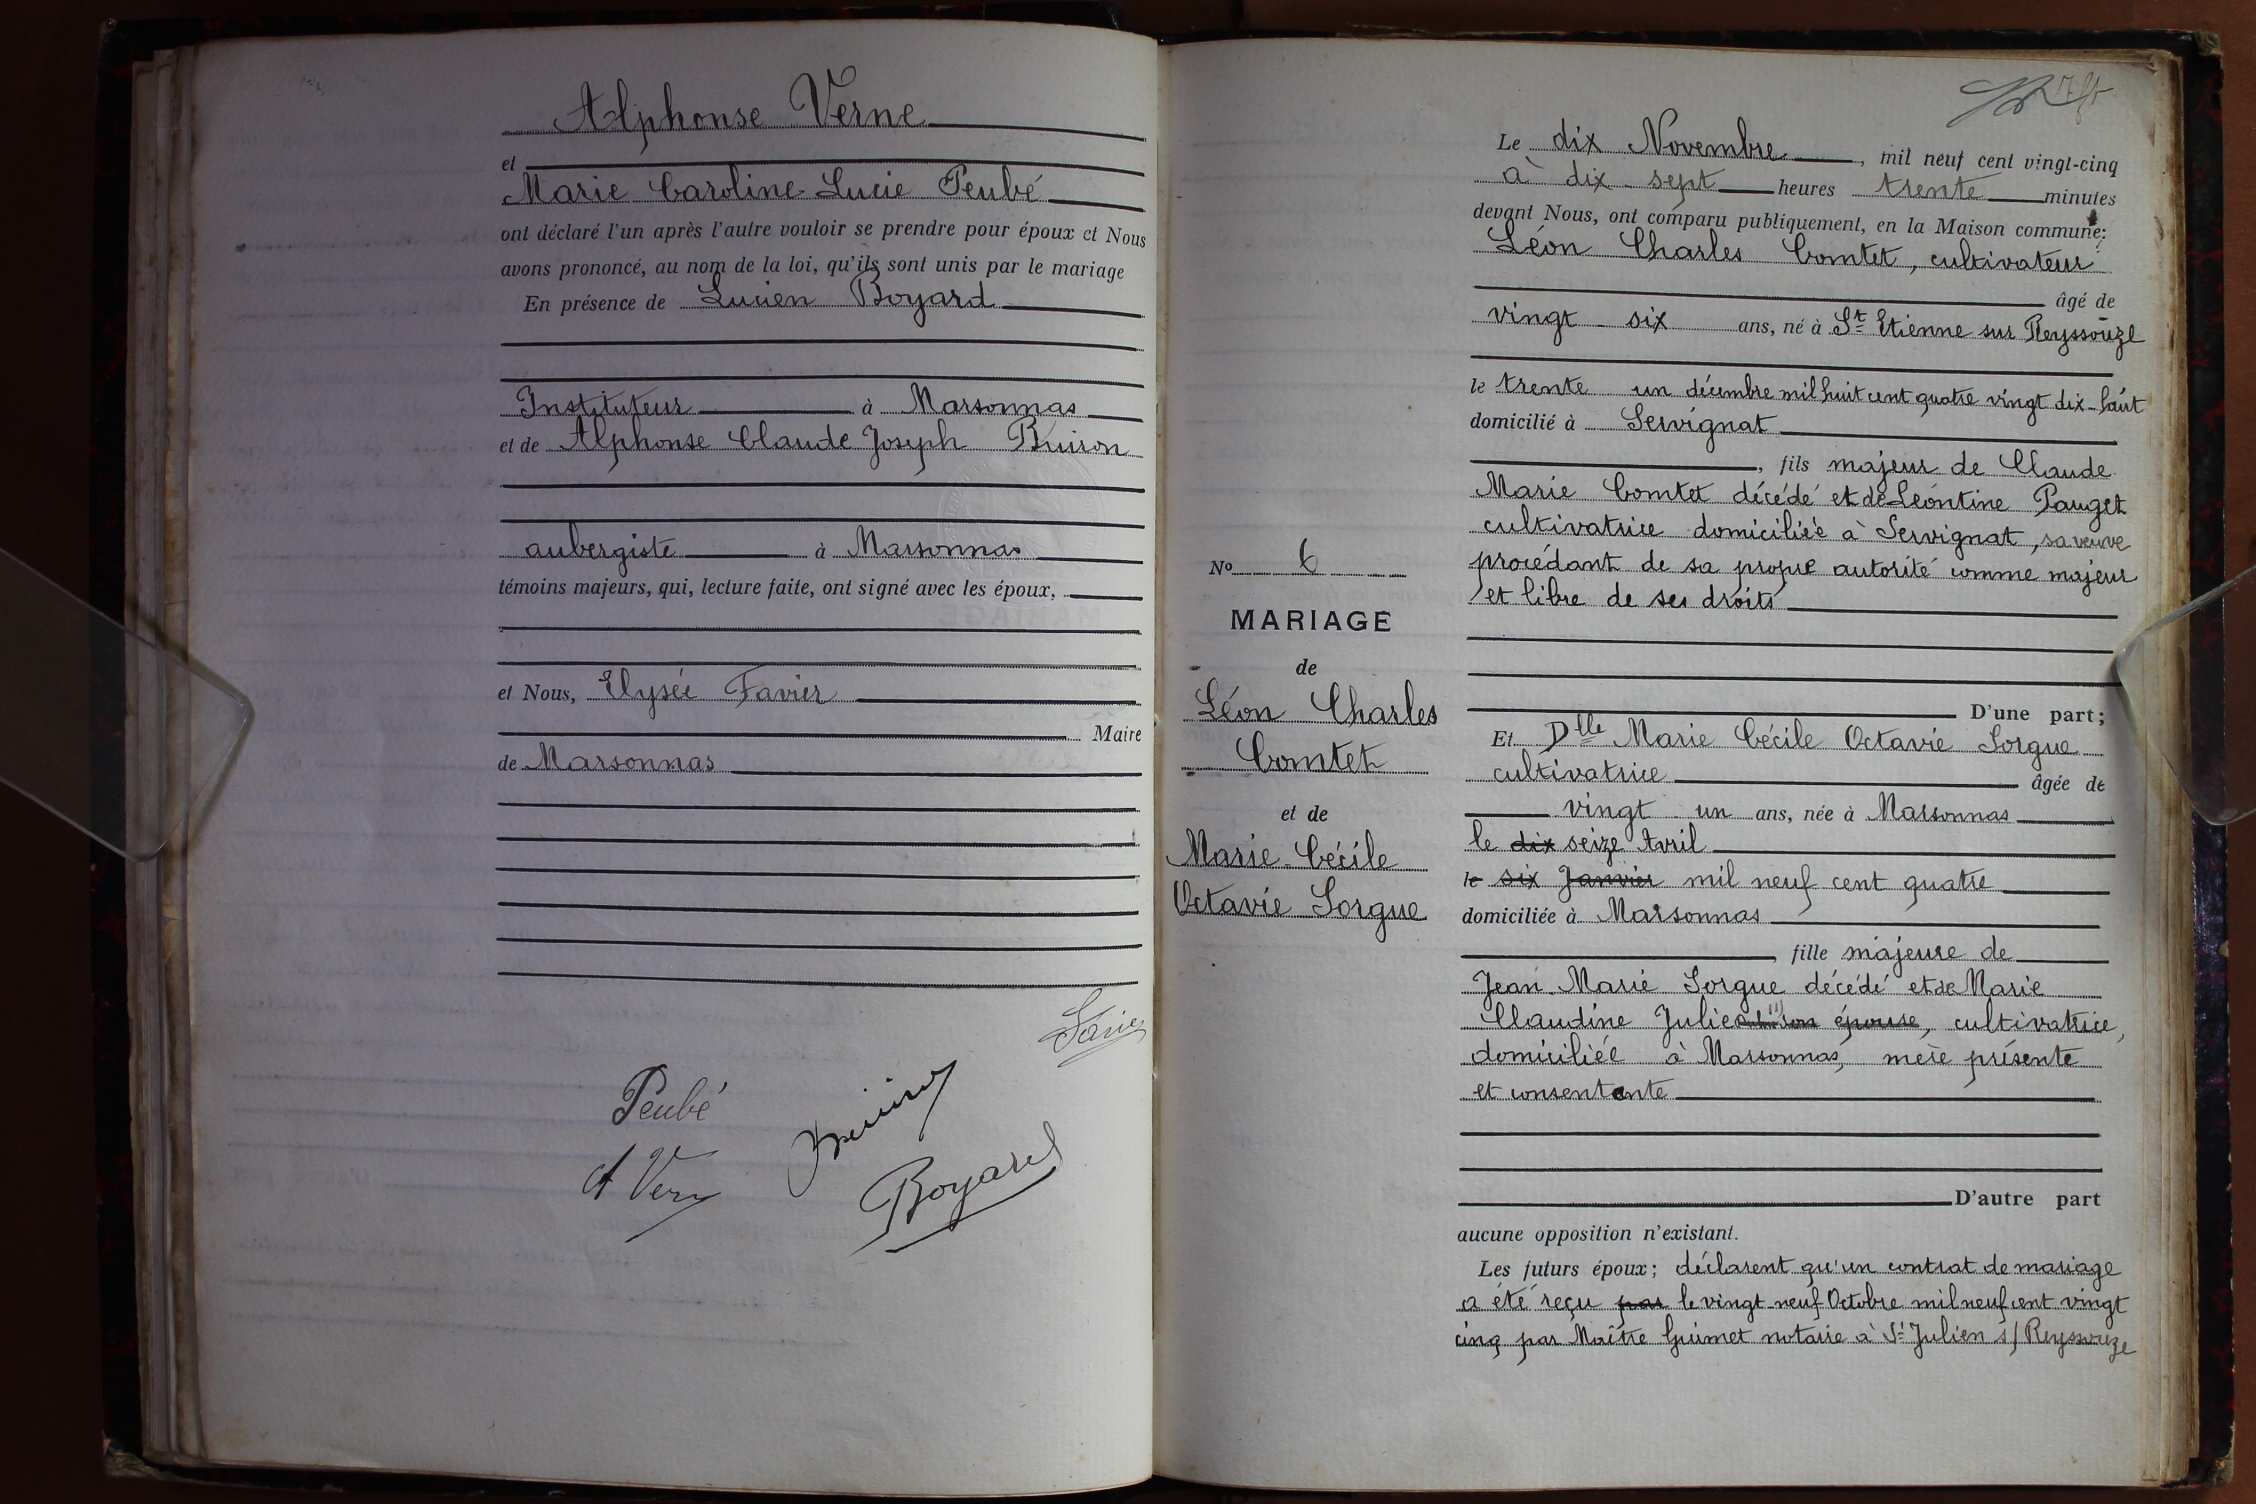 Alphonse Verne
et
Marie Caroline Lucie Peubé
ont déclaré l'un après l'autre vouloir se prendre pour époux et Nous
avons prononcé, au nom de la loi, qu'ils sont unis par le mariage
En présence de Lucien Boyard
Instituteur à Marsonnas
et de Alphonse Claude Joseph Buiron
aubergiste à Marsonnas
témoins majeurs, qui, lecture faite, ont signé avec les époux,
et Nous, Elysée Favier
Maire
de Marsonnas
Favier
Peubé
Buiron
A Verne
Boyard
Le dix Novembre, mil neuf cent vingt-cinq
à dix-sept heures trente minutes
devant Nous, ont comparu publiquement, en la Maison commune:
Léon Charles Comtet, cultivateur
âgé de
vingt-six ans, né à St Etienne sur Reyssouze
le trente un décembre mil huit cent quatre vingt dix-huit
domicilié à Servignat
, fils majeur de Claude
Marie Comtet décédé et de Léontine Pauget
cultivatrice domiciliée à Servignat, sa veuve
procédant de sa propre autorité comme majeur
et libre de ses droits
D'une part;
Et Dlle Marie Cécile Octavie Sorgue
cultivatrice âgée de
vingt-un ans, née à Marsonnas
le dix seize Avril
le six Janvier mil neuf cent quatre
domiciliée à Marsonnas
, fille majeure de
Jean-Marie Sorgue décédé et de Marie
Claudine Julie son épouse, cultivatrice,
domiciliée à Marsonnas, mère présente
et consentante
D'autre part
aucune opposition n'existant.
Les futurs époux; déclarent qu'un contrat de mariage
a été reçu par le vingt neuf Octobre mil neuf cent vingt
cinq par Maître Guimet notaire à St Julien s/ Reyssouze
No 6
MARIAGE
de
Léon Charles
Comtet
et de
Marie-Cécile
Octavie Sorgue